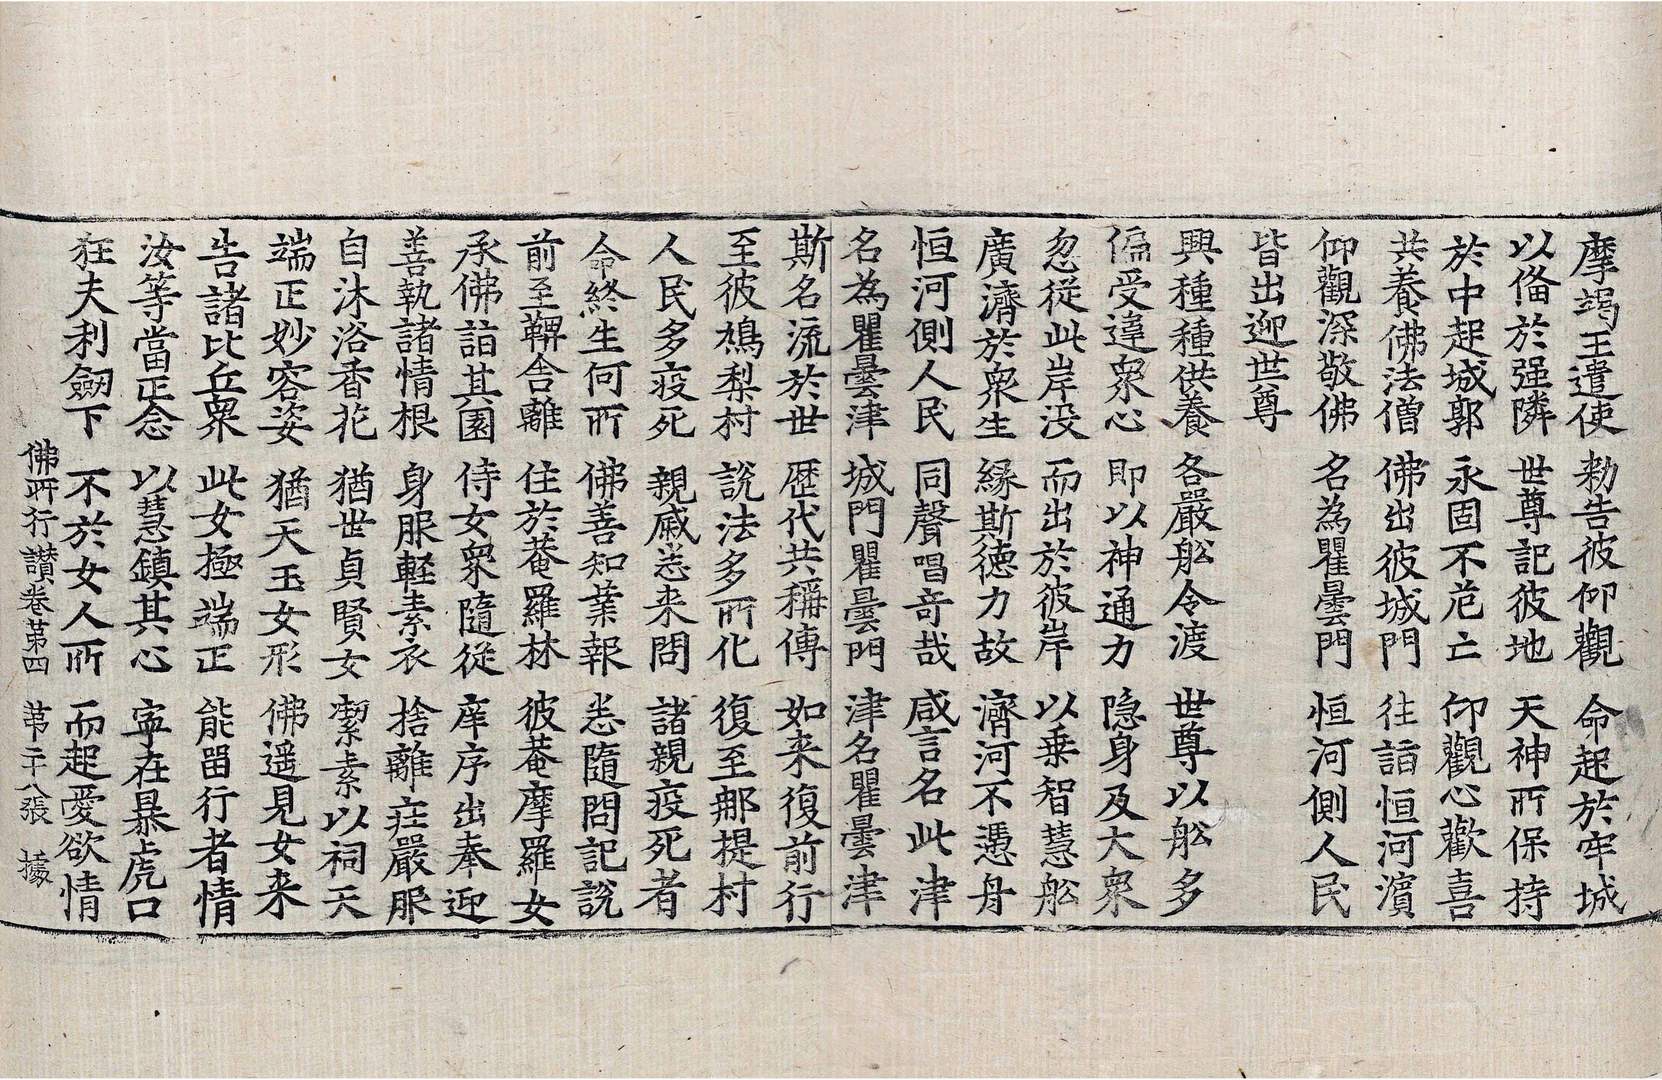 摩竭王遣使 勑告彼仰觀 命起於牢城
以俻於强隣 世尊記彼地 天神所保持
於中起城郭 永固不危亡 仰觀心歡喜
共養佛法僧 佛出彼城門 往詣恒河濱
仰觀深敬佛 名為瞿曇門 恒河側人民
皆出迎世尊
興種種供養 各嚴舩令渡 世尊以舩多
偏受違衆心 即以神通力 隐身及大衆
忽從此岸没 而出於彼岸 以乗智慧舩
廣濟於衆生 緣斯德力故 濟河不憑舟
恒河側人民 同聲唱竒哉 咸言名此津
名為瞿曇津 城門瞿曇門 津名瞿曇津
斯名流於世 歷代共稱傳 如来復前行
至彼鳩梨村 說法多所化 復至那提村
人民多疫死 親戚悉来問 諸親疫死者
命終生何所 佛善知業報 悉隨問記說
前至鞞舍離 住於菴羅林 彼菴摩羅女
承佛詣其園 侍女衆隨從 庠序出奉迎
善執諸情根 身服軽素衣 捨離莊嚴服
自沐浴香花 猶世貞賢女 潔素以祠天
端正妙容姿 猶天玉女形 佛遥見女来
告諸比丘衆 此女極端正 能畱行者情
汝等當正念 以慧鎮其心 寧在暴虎口
狂夫利劒下 不於女人所 而起愛欲情
佛所行讃卷苐四 苐二十八張 據